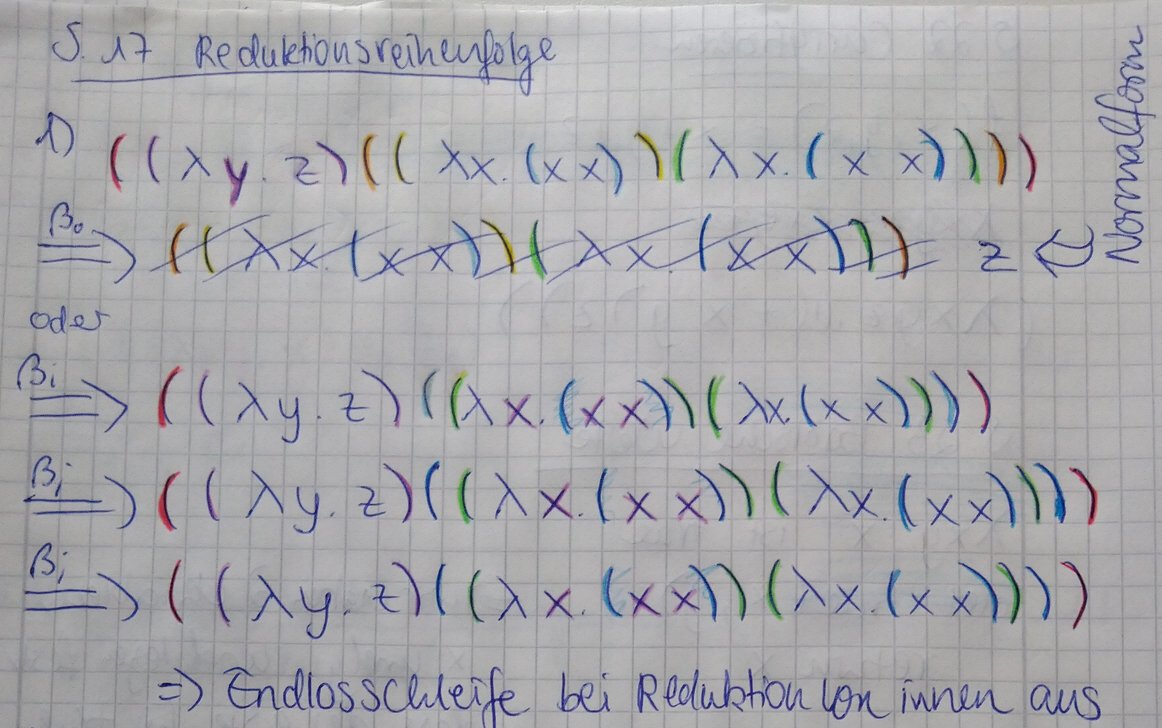 S. 17 Reduktionsreihenfolge
1) ((λy. z)((λx. (x x))(λx. (x x))))
β₀ ⇒ ((λx. (x x))(λx. (x x))) z ⇐ Normalform
oder
βi ⇒ ((λy. z)((λx. (x x))(λx. (x x))))
βi ⇒ ((λy. z)((λx. (x x))(λx. (x x))))
βi ⇒ ((λy. z)((λx. (x x))(λx. (x x))))
=> Endlosschleife bei Reduktion von innen aus